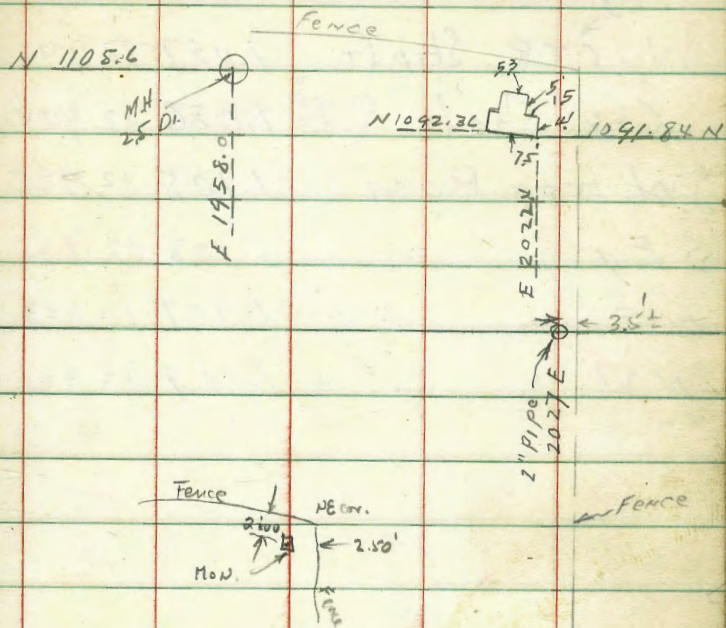 Fence
N 1105.6
MH
2.5 DI.
E 1958.0
53
5
15
4
N 1092.36
1091.84 N
75
E 2022
3.5'±
2" PIPE
2027 E
Fence
NE cor.
2.00
2.50'
MON.
Fence
Fence